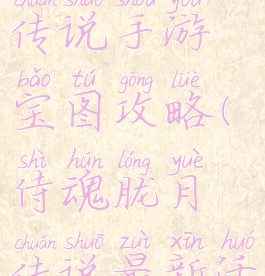 chuán shuō shǒu yóu
传说手游
bǎo tú gōng lüè
宝图攻略(
shì hún lóng yuè
侍魂胧月
chuán shuō zuì xīn huó
传说最新活